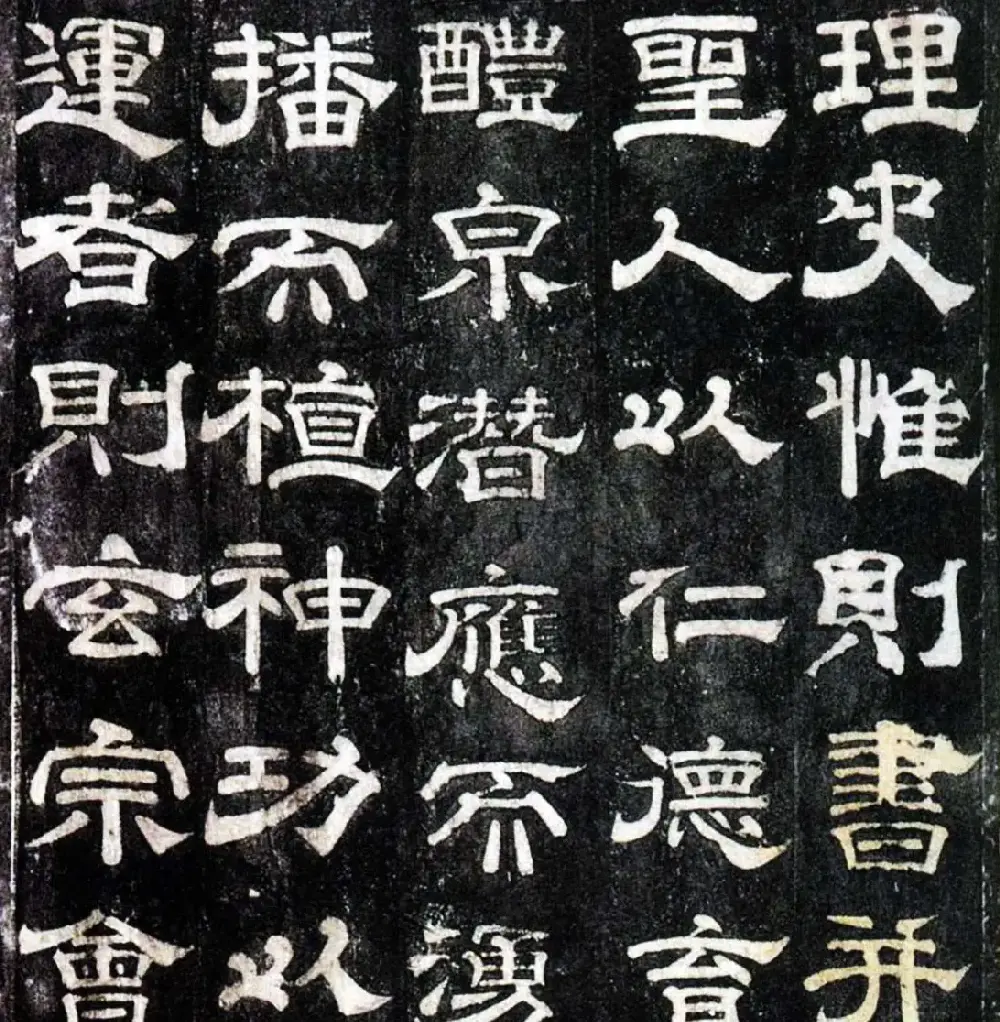 理史惟則書并
聖人以仁德育
醴泉潜應而湧
播而植神功以
運者則玄宗會